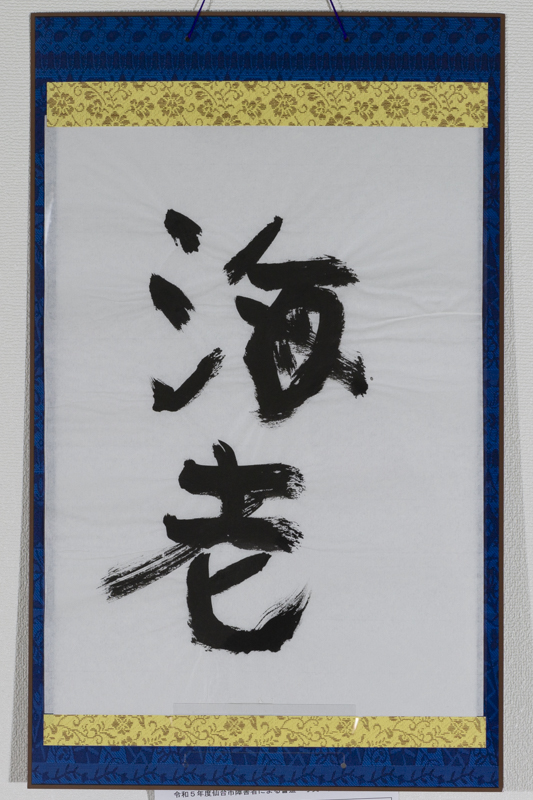 海老
令和5年度仙台市障害者による書道